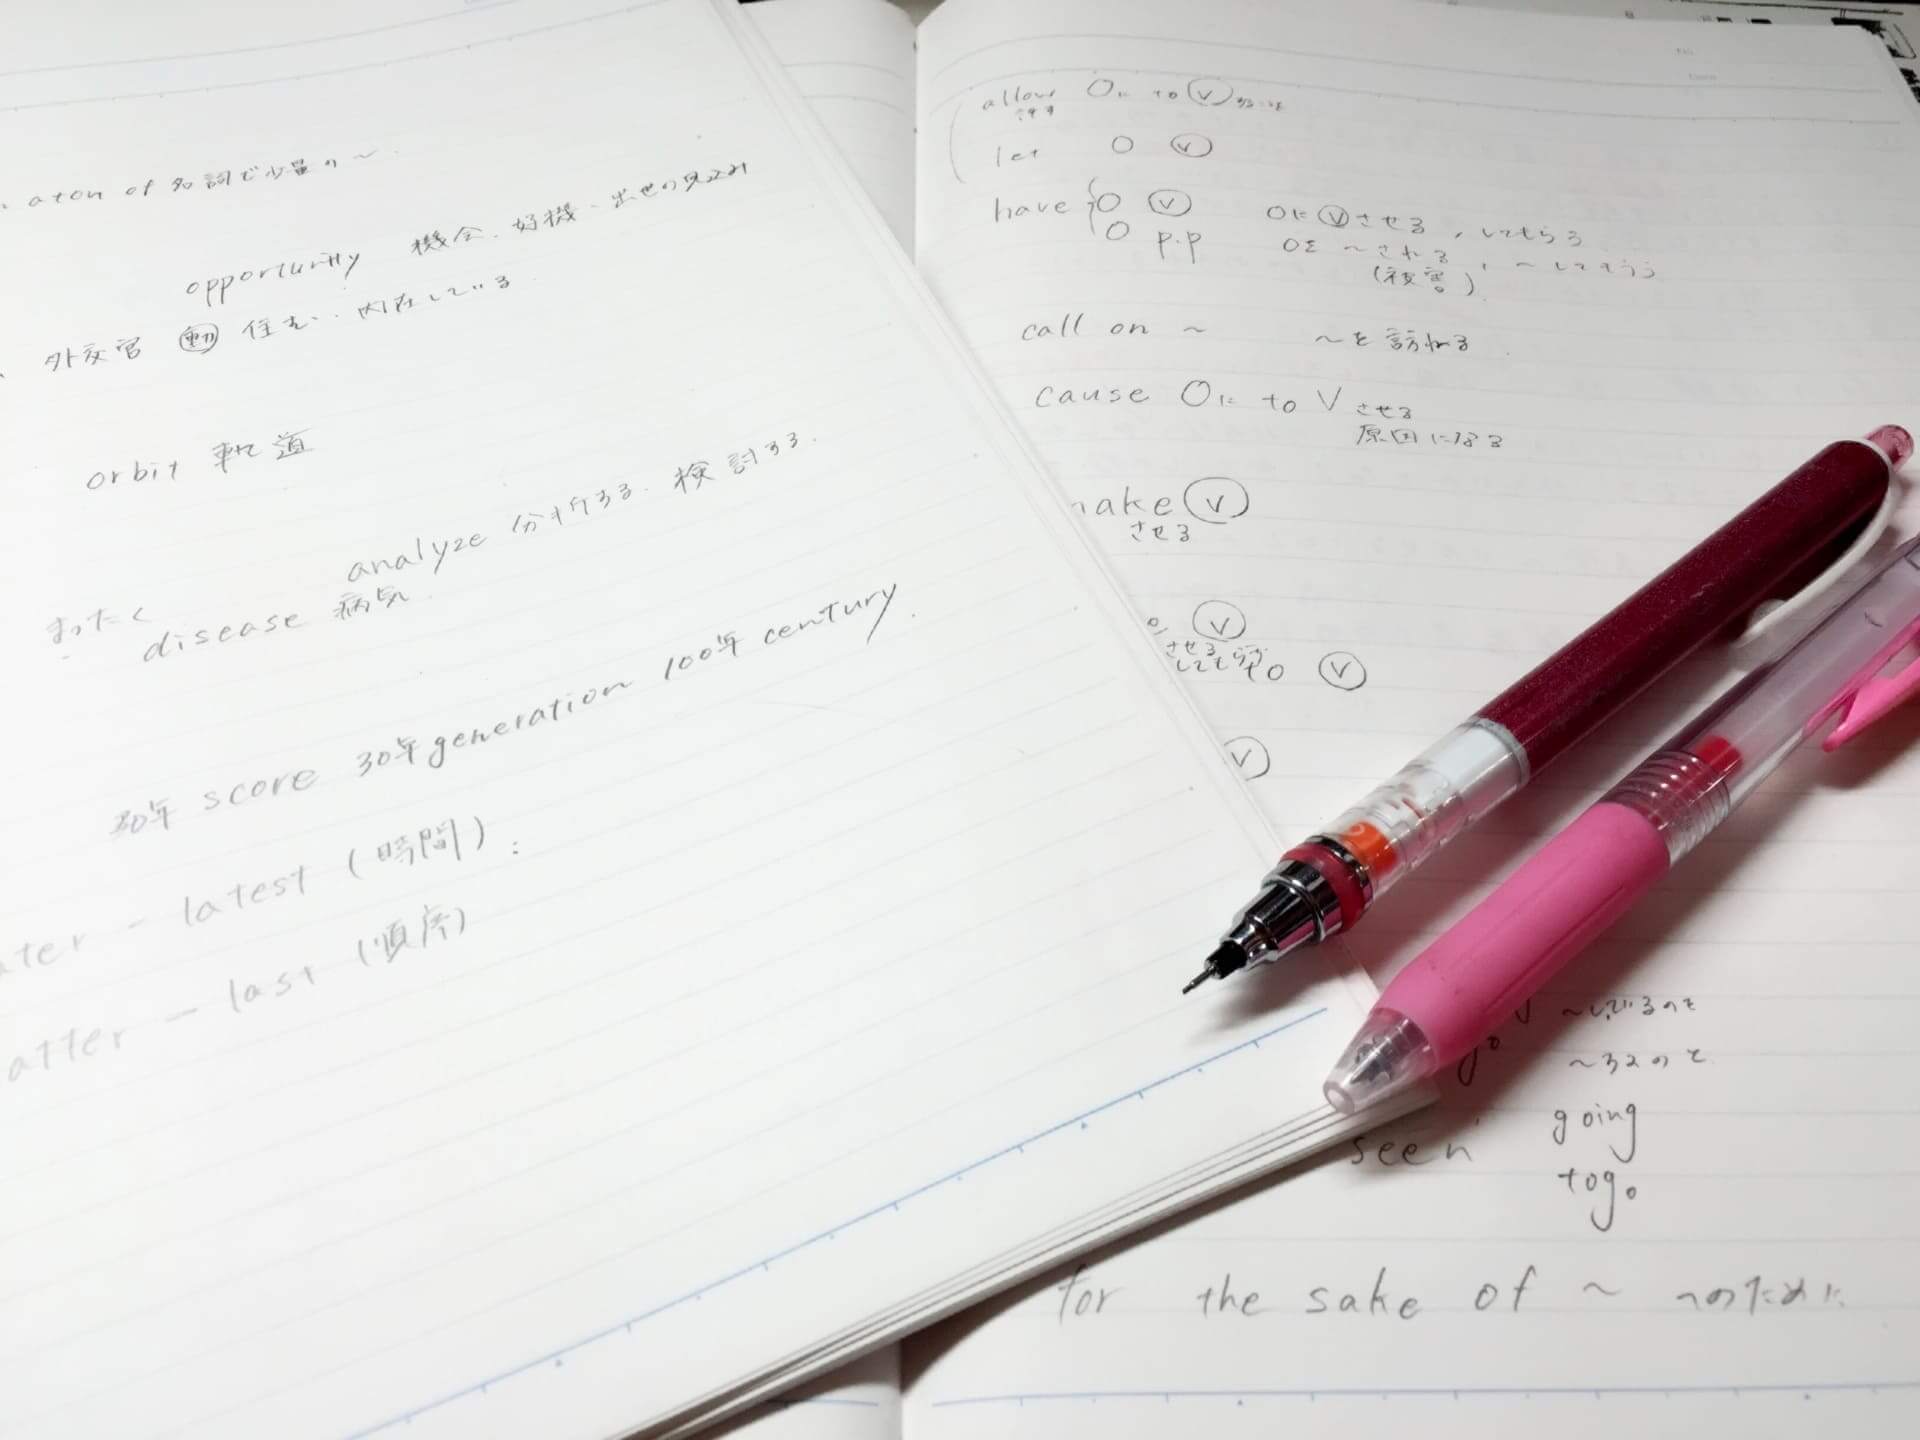 atom of 名詞で少量の〜
opportunity 機会、好機、出世の見込み
外交官 動 住む、内在している
orbit 軌道
analyze 分析する、検討する
まったく
disease 病気
score 30年 generation 100年 century
latest (時間)
last (順序)
allow Oに to V すること
許す
let O V
have O V OにVさせる, してもらう
O p.p Oを〜される, 〜してもらう
(被害)
call on 〜 〜を訪れる
cause Oに to V させる
原因になる
make V
させる
V
させる
してもらう O V
V
〜しているのを
go 〜するのを
seen going
to go
for the sake of 〜 〜のために